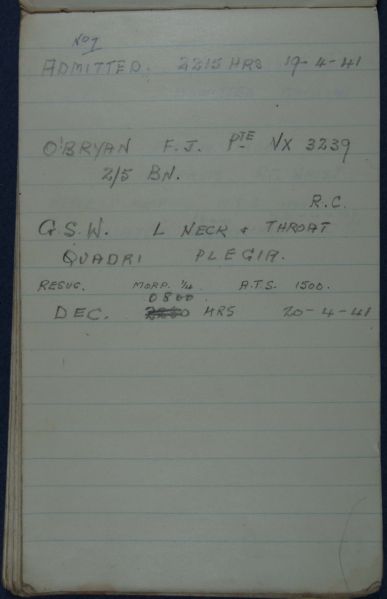 No 1
ADMITTED. 2215 HRS 19-4-41
O'BRYAN F.J. PTE VX 3239
2/5 BN.
R.C.
G.S.W. L NECK & THROAT
QUADRI PLEGIA.
RESUS. MORP. ¼ A.T.S. 1500.
0800
DEC. HRS 20-4-41